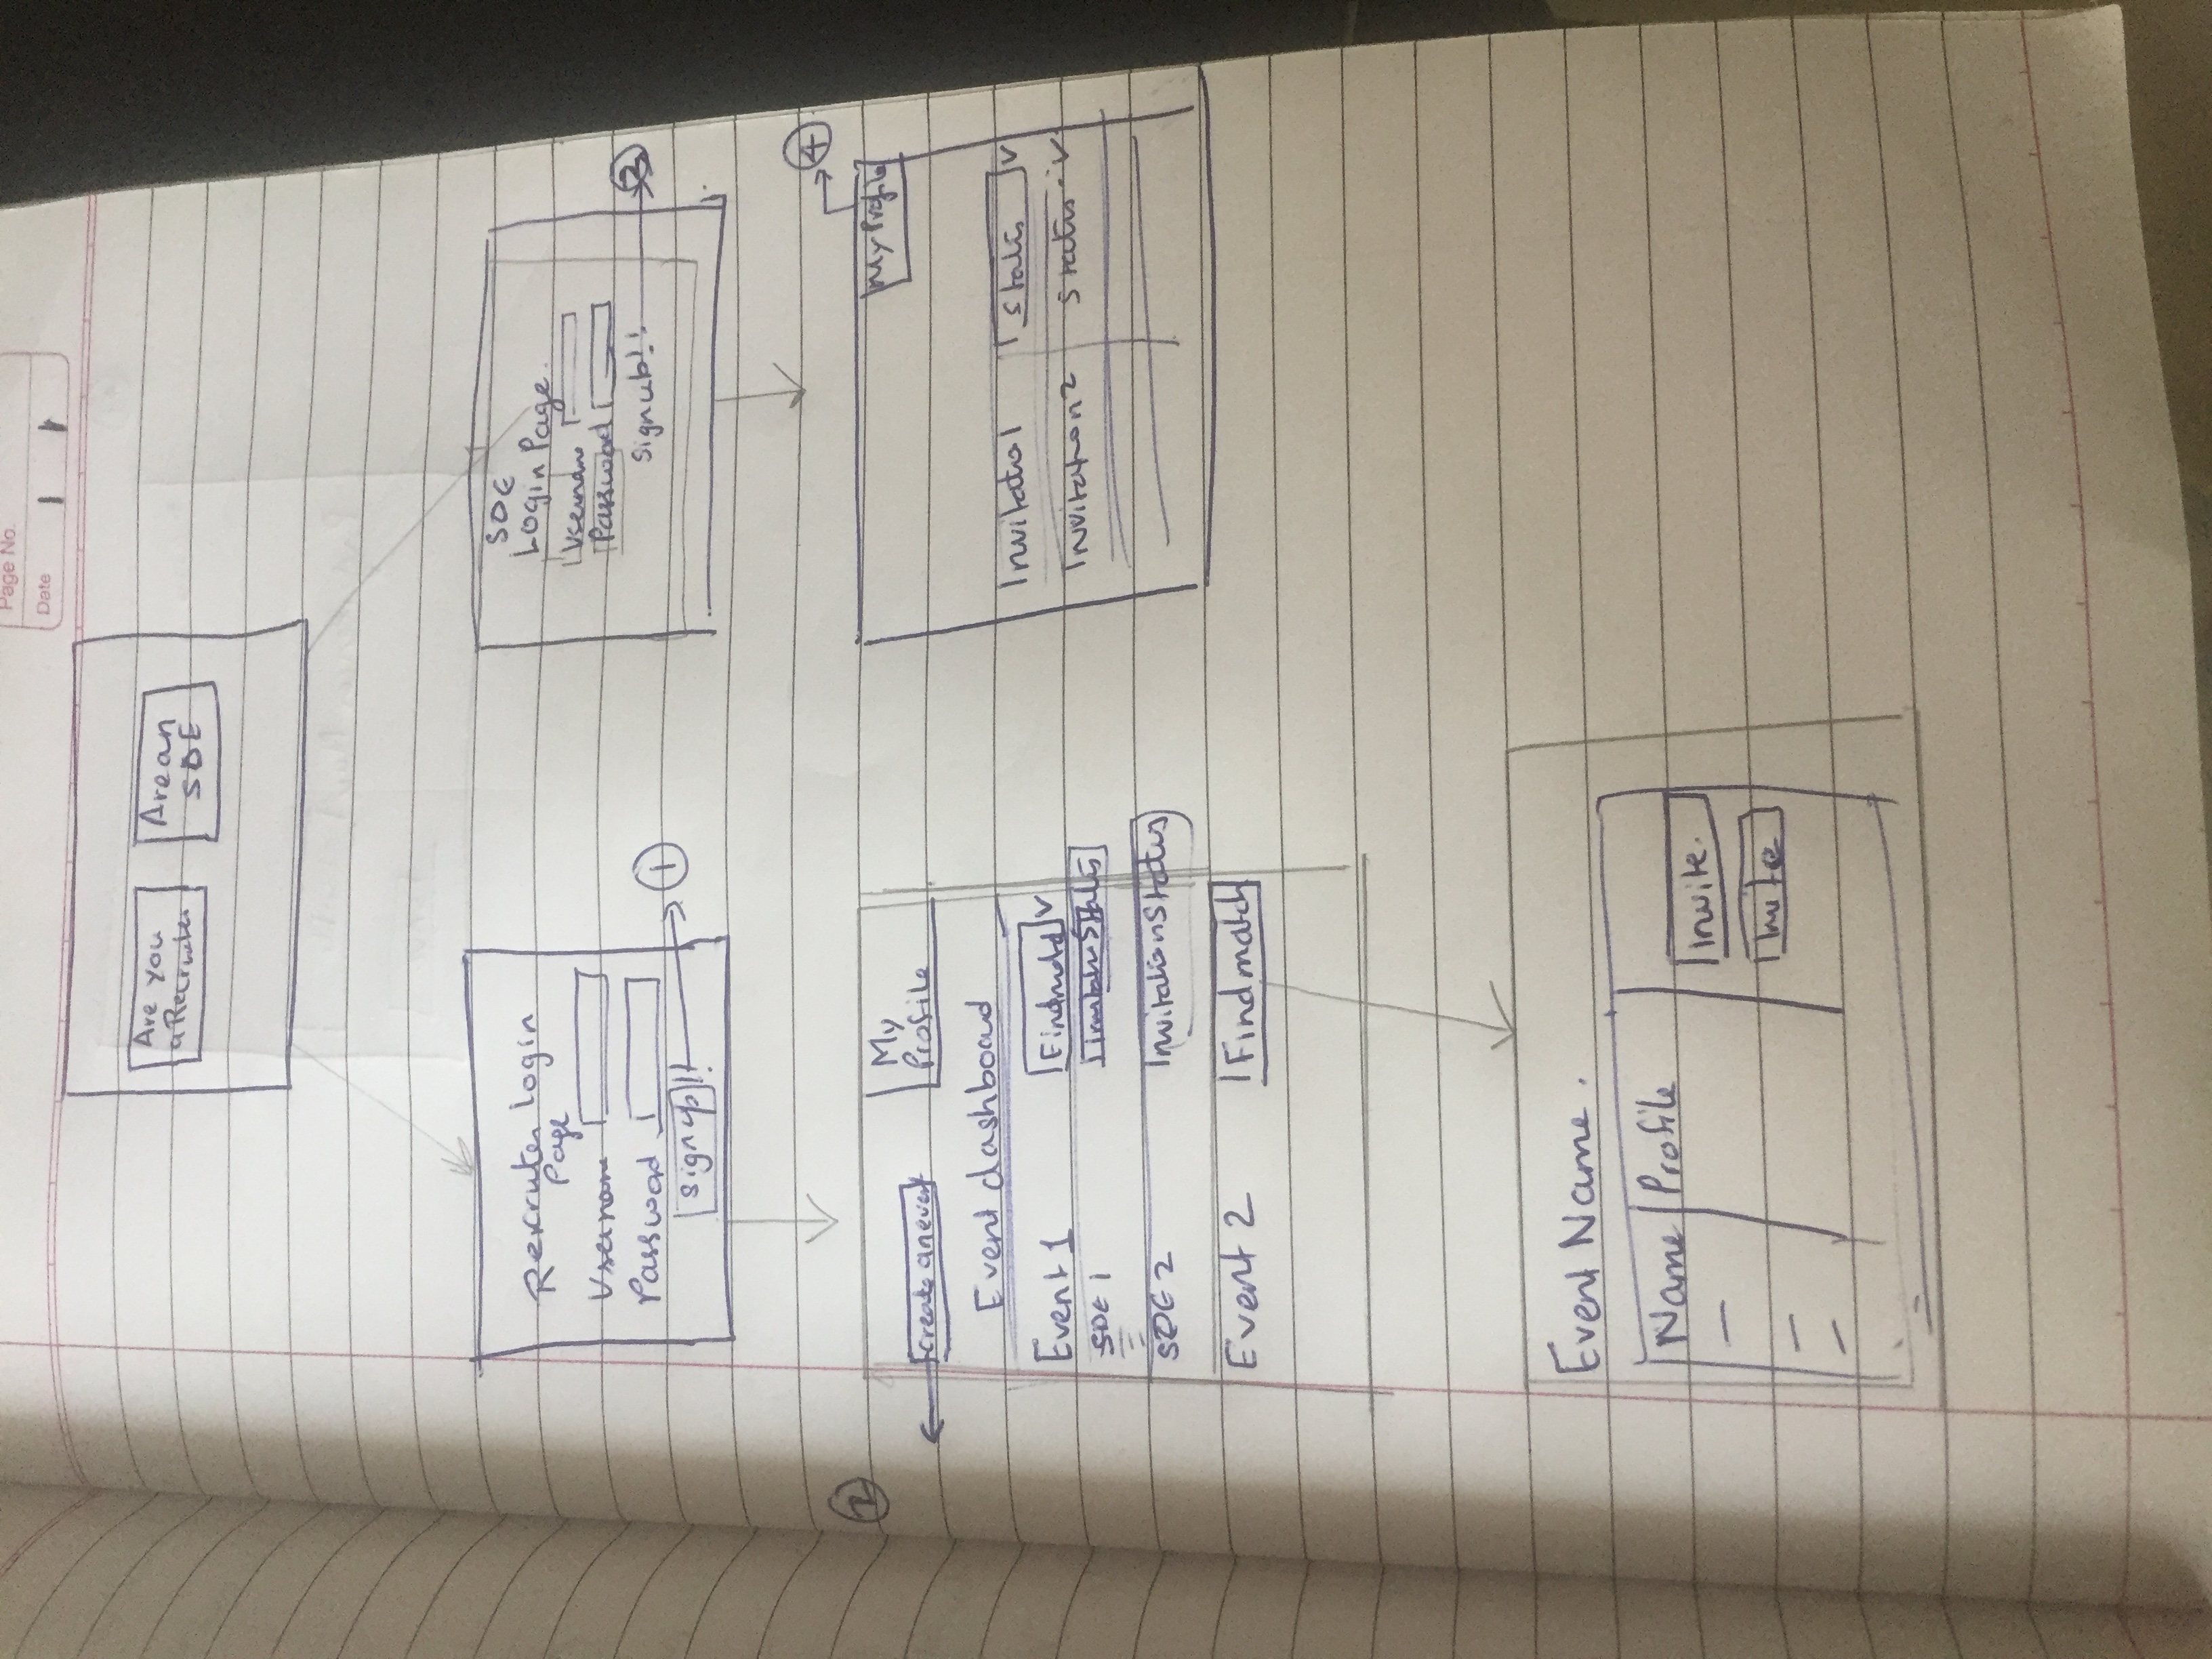 Page No.
Date
Are you
a Recruiter
Are an
SDE
Recruiter Login
Page
Username
Password
Sign up!!
1
SDE
Login Page.
Username
Password
Signup!!
2
Create an event
My
Profile
Event dashboard
Event 1
SDE 1
SDE 2
Invitation Status
Event 2
Find match
4
My Profile
Invitatio 1
Status
Invitation 2
Status
Event Name.
Name
Profile
Invite.
Invite